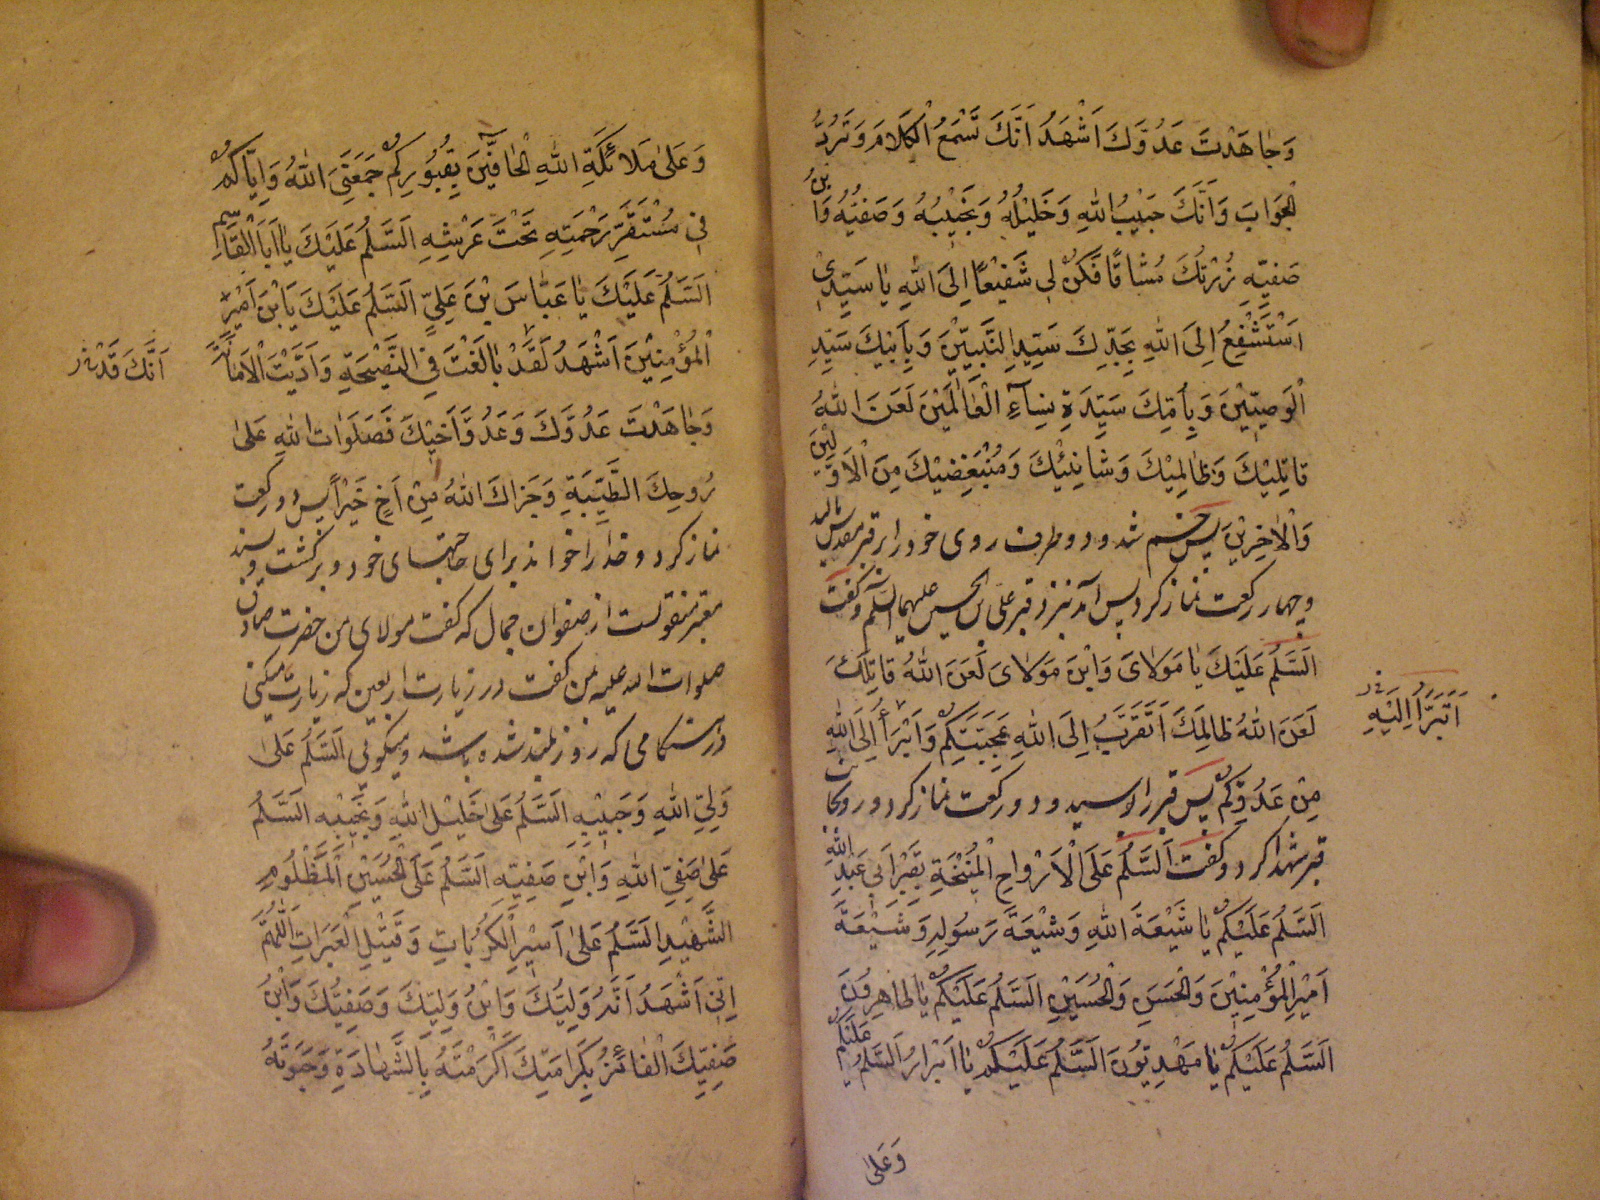 وَجاهَدْتَ عَدُوَّكَ اَشْهَدُ اَنَّكَ تَسْمَعُ الْكَلامَ وَتَرُدُّ
الْجَوابَ وَاَنَّكَ حَبيْبُ اللهِ وَخَليْلُهُ وَنَجيْبُهُ وَصَفيُّهُ وَابْنُ
صَفيِّهِ زُرْتُكَ مُشتاقًا فَكُنْ لى شَفيْعًا اِلَى اللهِ يا سَيِّدِىْ
اَسْتَشْفِعُ اِلَى اللهِ بِجَدِّكَ سَيِّدِ النَّبِيّيْنَ وَبِاَبيْكَ سَيِّدِ
الْوَصِيّيْنَ وَبِاُمِّكَ سَيِّدَةِ نِسآءِ الْعالَمَيْنَ لَعَنَ اللهُ
قاتِليْكَ وَظالِميْكَ وَشانِئيْكَ وَمُبْغِضيْكَ مِنَ الْاَوَّليْنَ
وَالْاخِريْنَ پس خم شد و دو طرف روى خود را بر قبر مقدس ماليد
و چهار ركعت نماز كرد پس آمد نزد قبر على بن الحسين عليهما السلام و گفت
اَلسَّلمُ عَلَيْكَ يا مَوْلاىَ وَابْنَ مَوْلاىَ لَعَنَ اللهُ قاتِلَكَ
لَعَنَ اللهُ ظالِمَكَ اَتَقَرَّبُ اِلَى اللهِ بِمَحَبَّتِكُمْ وَاَبْرَأُ اِلَى اللهِ
اَتَبَرَّأُ اِلَيْهِ
مِنْ عَدُوِّكُمْ پس قبر را بوسيد و دو ركعت نماز كرد و رو بجانب
قبر شهدا كرد و گفت اَلسَّلمُ عَلَى الْاَرْواحِ الْمُنيْخَةِ بِقَبْرِ اَبى عَبْدِ اللهِ
اَلسَّلمُ عَلَيْكُمْ يا شيْعَةَ اللهِ وَشيْعَةَ رَسُولِهِ وَشيْعَةَ
اَميْرِ الْمُؤْمِنيْنَ وَالْحَسَنِ وَالْحُسَيْنِ اَلسَّلمُ عَلَيْكُمْ يا طاهِرُونَ
اَلسَّلمُ عَلَيْكُمْ يا مَهْدِيُّونَ اَلسَّلمُ عَلَيْكُمْ يا اَبْرارُ اَلسَّلمُ عَلَيْكُمْ
وَعَلى
وَعَلى مَلائِكَةِ اللهِ الْحافّيْنَ بِقُبُورِكُمْ جَمَعَنِىَ اللهُ وَاِيّاكُمْ
فى مُسْتَقَرِّ رَحْمَتِهِ تَحْتَ عَرْشِهِ اَلسَّلمُ عَلَيْكَ يا اَبَا الْقاسِمِ
اَلسَّلمُ عَلَيْكَ يا عَبّاسَ بْنَ عَلِيٍّ اَلسَّلمُ عَلَيْكَ يَابْنَ اَميْرِ
الْمُؤْمِنيْنَ اَشْهَدُ لَقَدْ بالَغْتَ فِى النَّصيْحَةِ وَاَدَّيْتَ الْاَمانَةَ
اَنَّكَ قَدْ
وَجاهَدْتَ عَدُوَّكَ وَعَدُوَّ اَخيْكَ فَصَلَواتُ اللهِ عَلى
رُوحِكَ الطَّيِّبَةِ وَجَزاكَ اللهُ مِنْ اَخٍ خَيْرًا پس دو ركعت
نماز كرد و خدا را خواند براى حاجتهاى خود و برگشت و بسند
معتبر منقولست از صفوان جمال كه گفت مولاى من حضرت صادق
صلوات الله عليه بمن گفت در زيارت اربعين كه زيارت ميكنى
در هنگامى كه روز بلند شده باشد و ميگوئى اَلسَّلمُ عَلى
وَلِىِّ اللهِ وَحَبيْبِهِ اَلسَّلمُ عَلى خَليْلِ اللهِ وَنَجيْبِهِ اَلسَّلمُ
عَلى صَفِىِّ اللهِ وَابْنِ صَفِيِّهِ اَلسَّلمُ عَلَى الْحُسَيْنِ الْمَظْلُومِ
الشَّهيْدِ اَلسَّلمُ عَلى اَسيْرِ الْكُرُباتِ وَقَتيْلِ الْعَبَراتِ اَللّهُمَّ
اِنّى اَشْهَدُ اَنَّهُ وَلِيُّكَ وَابْنُ وَلِيِّكَ وَصَفِيُّكَ وَابْنُ
صَفِيِّكَ الْفائِزُ بِكَرامَتِكَ اَكْرَمْتَهُ بِالشَّهادَةِ وَحَبَوْتَهُ